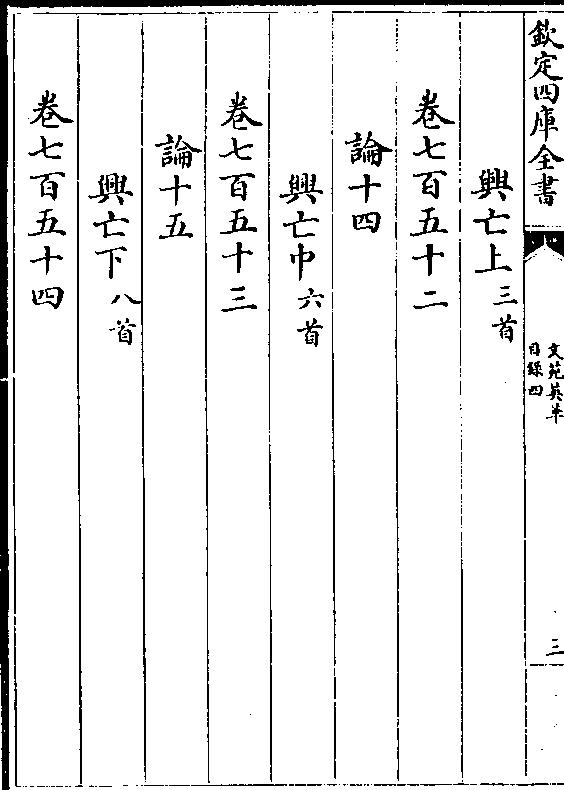 欽定四庫全書
文苑英華
目錄四
三
興亡上三首
卷七百五十二
論十四
興亡中六首
卷七百五十三
論十五
興亡下八首
卷七百五十四